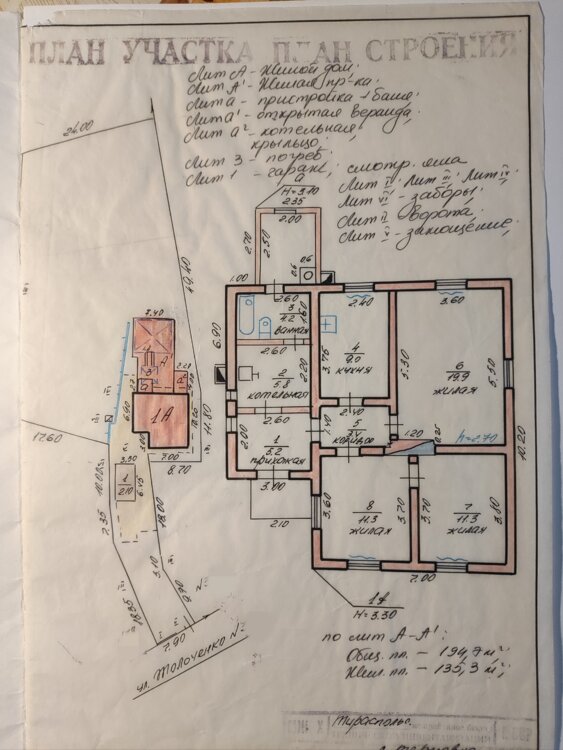 ПЛАН УЧАСТКА ПЛАН СТРОЕНИЯ
Лит А - Жилой дом.
Лит А' - Жилая пр-ка.
Лит а - пристройка
Лит а' - открытая веранда,
Лит а² - котельная,
крыльцо;
Лит 3 - погреб.
Лит 1 - гараж, смотр. яма
Лит I, Лит III, Лит IV,
Лит VI - заборы.
Лит II - ворота.
Лит V - замощение;
24.00
49.40
17.60
3.40
1А
7.00
8.70
11.80
6.90
3.50
1
210
6.45
18.00
10.00
7.35
3.10
18.35
7.90
ул. Толоченко №
а
Н=3.10
2.35
2.00
2.70
2.50
0.6
0.6
1.00
2.60
2.40
3.60
6.90
3
4.2
1.60
ванная
2.60
2
5.8
2.20
котельная
4
9.0
3.75
кухня
5.50
6
19.9
жилая
5.50
10.20
2.60
2.40
2.00
1
5.2
прихожая
1.40
5
3.4
коридор
1.20
0.25
h=2.70
3.00
210
3.60
8
11.3
жилая
3.70
3.70
7
11.3
жилая
3.80
7.00
1А
Н=3.30
по лит А-А':
Общ. пл. - 194,7 м²
Жил. пл. - 135,3 м²;
Тирасполь